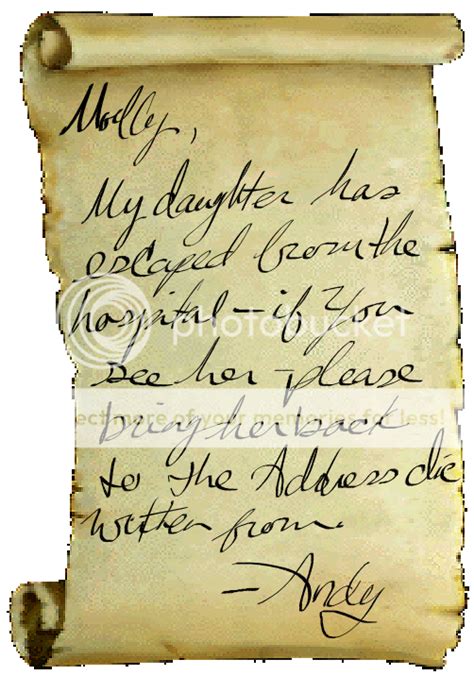 Molly,
My daughter has
escaped from the
hospital - if you
photobucket
see her - please
ect more of your memories for less!
bring her back
to the Address
written from.
- Andy